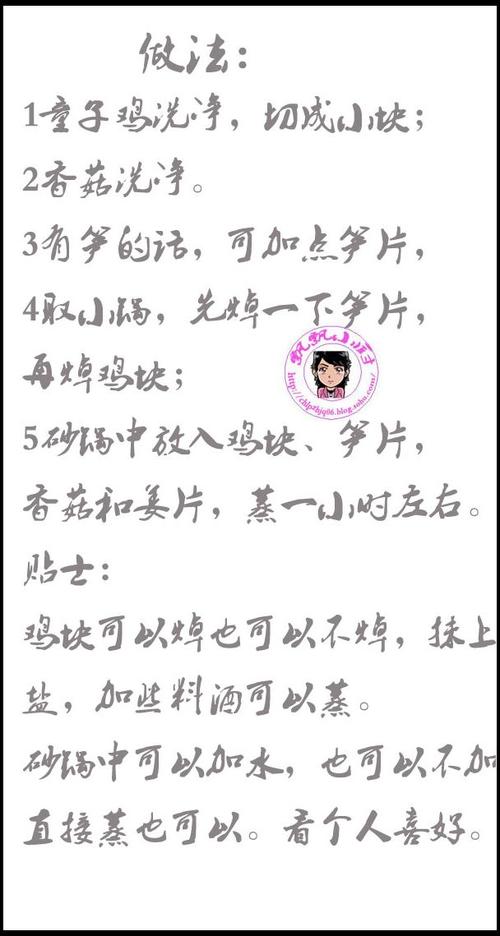 做法：
1童子鸡洗净，切成小块；
2香菇洗净。
3有笋的话，可加点笋片，
4取小锅，先焯一下笋片，
再焯鸡块；
5砂锅中放入鸡块、笋片，
香菇和姜片，蒸一小时左右。
贴士：
鸡块可以焯也可以不焯，抹上
盐，加些料酒可以蒸。
砂锅中可以加水，也可以不加
直接蒸也可以。看个人喜好。